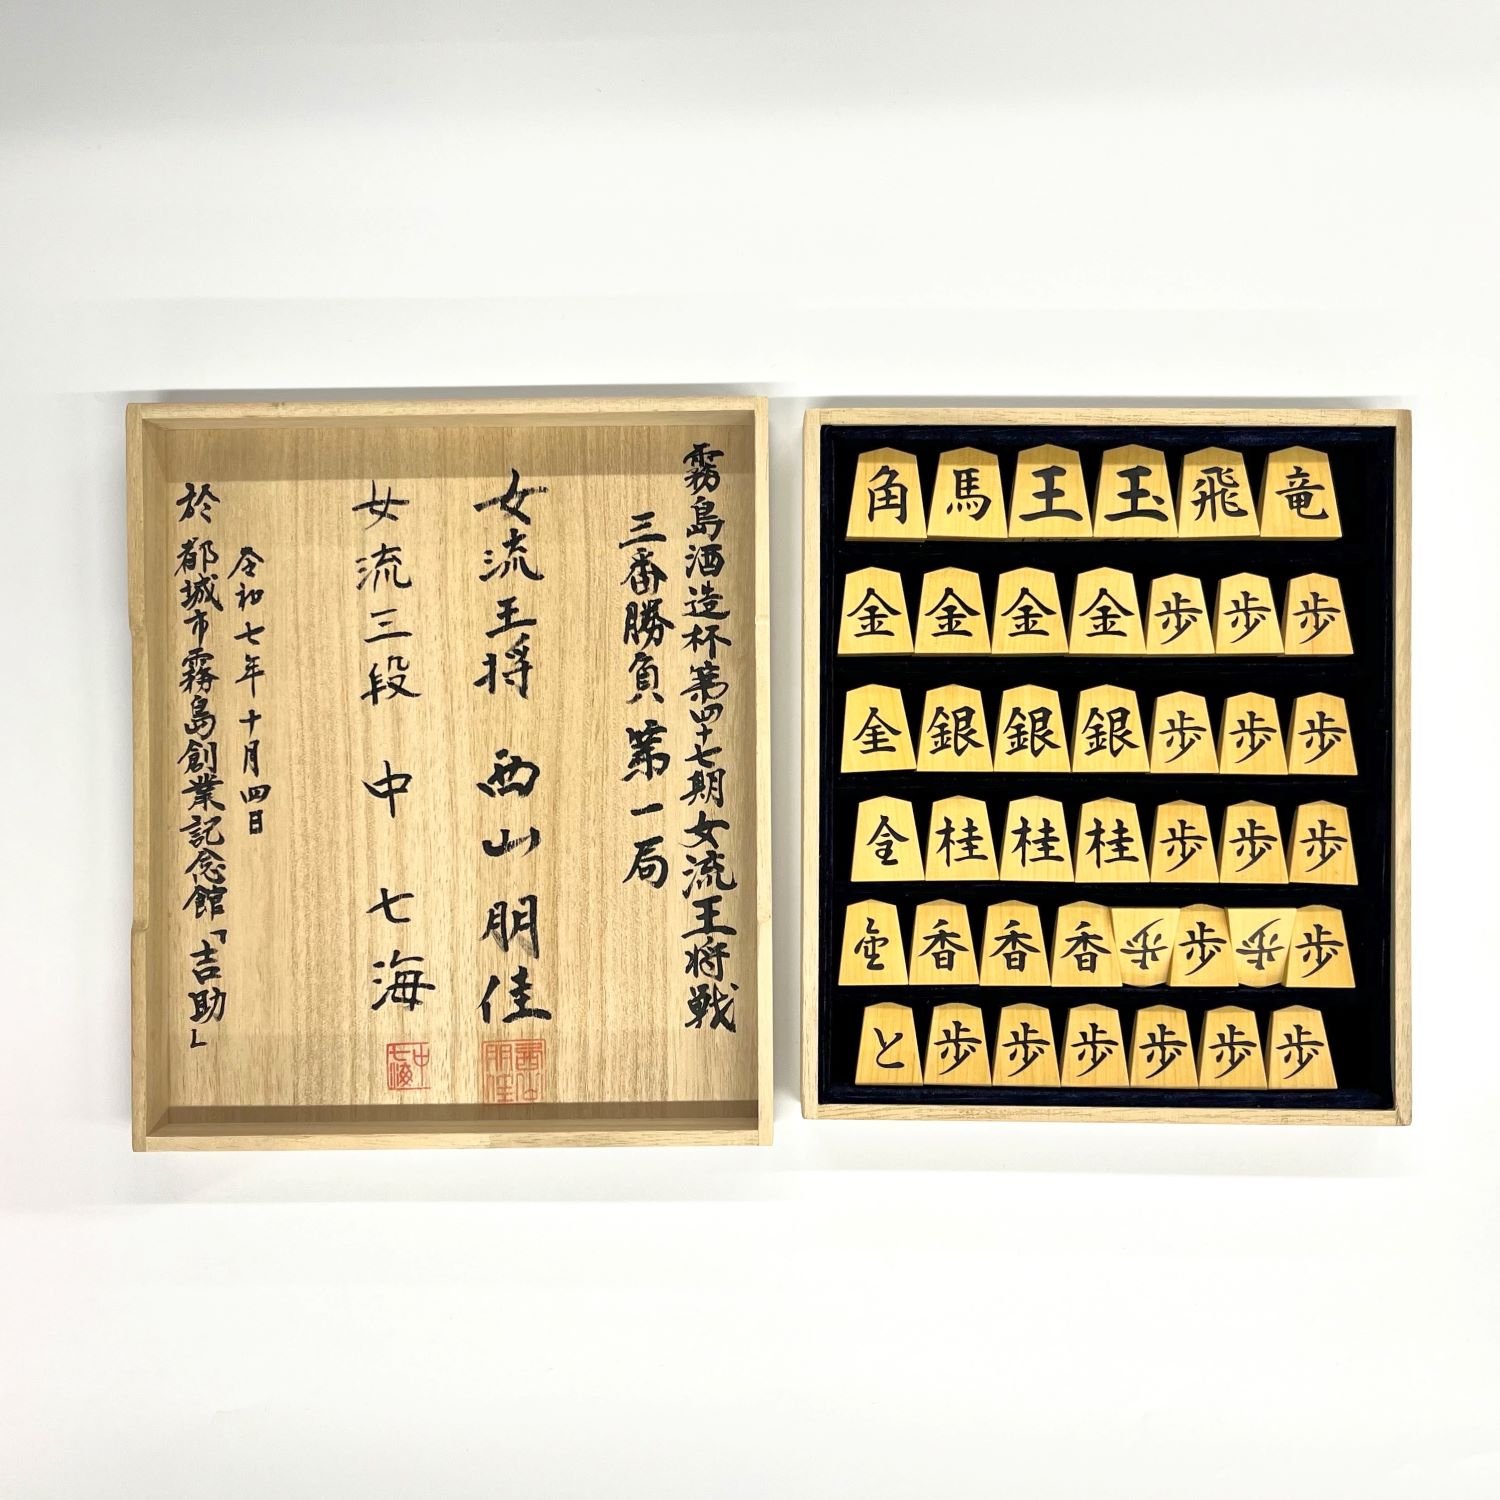 霧島酒造杯第四十七期女流王将戦
三番勝負第一局
女流王将 西山朋佳
女流三段 中七海
令和七年十月四日
於 都城市霧島創業記念館「吉助」
中七海
朋佳
角 馬 王 玉 飛 竜
金 金 金 金 歩 歩 歩
全 銀 銀 銀 歩 歩 歩
全 桂 桂 桂 歩 歩 歩
金 香 香 香 歩 歩 歩 歩
と 歩 歩 歩 歩 歩 歩